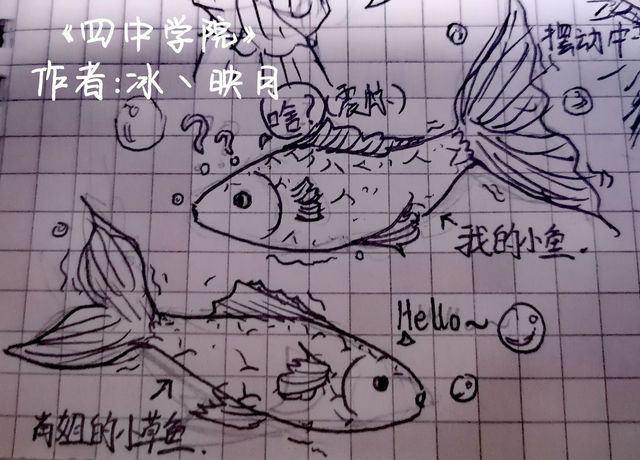 《四中学院》
作者:冰丶映月
摆动中
??
啥?
我的小鱼.
Hello~
肖姐的小草鱼.